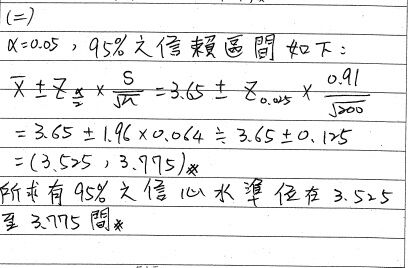 (二)
α=0.05，95%之信賴區間如下：
X̄ ± Z_{α/2} × S/√n = 3.65 ± Z_{0.025} × 0.91/√200
= 3.65 ± 1.96 × 0.064 ≑ 3.65 ± 0.125
= (3.525，3.775)※
所求有95%之信心水準位在3.525
至3.775間※